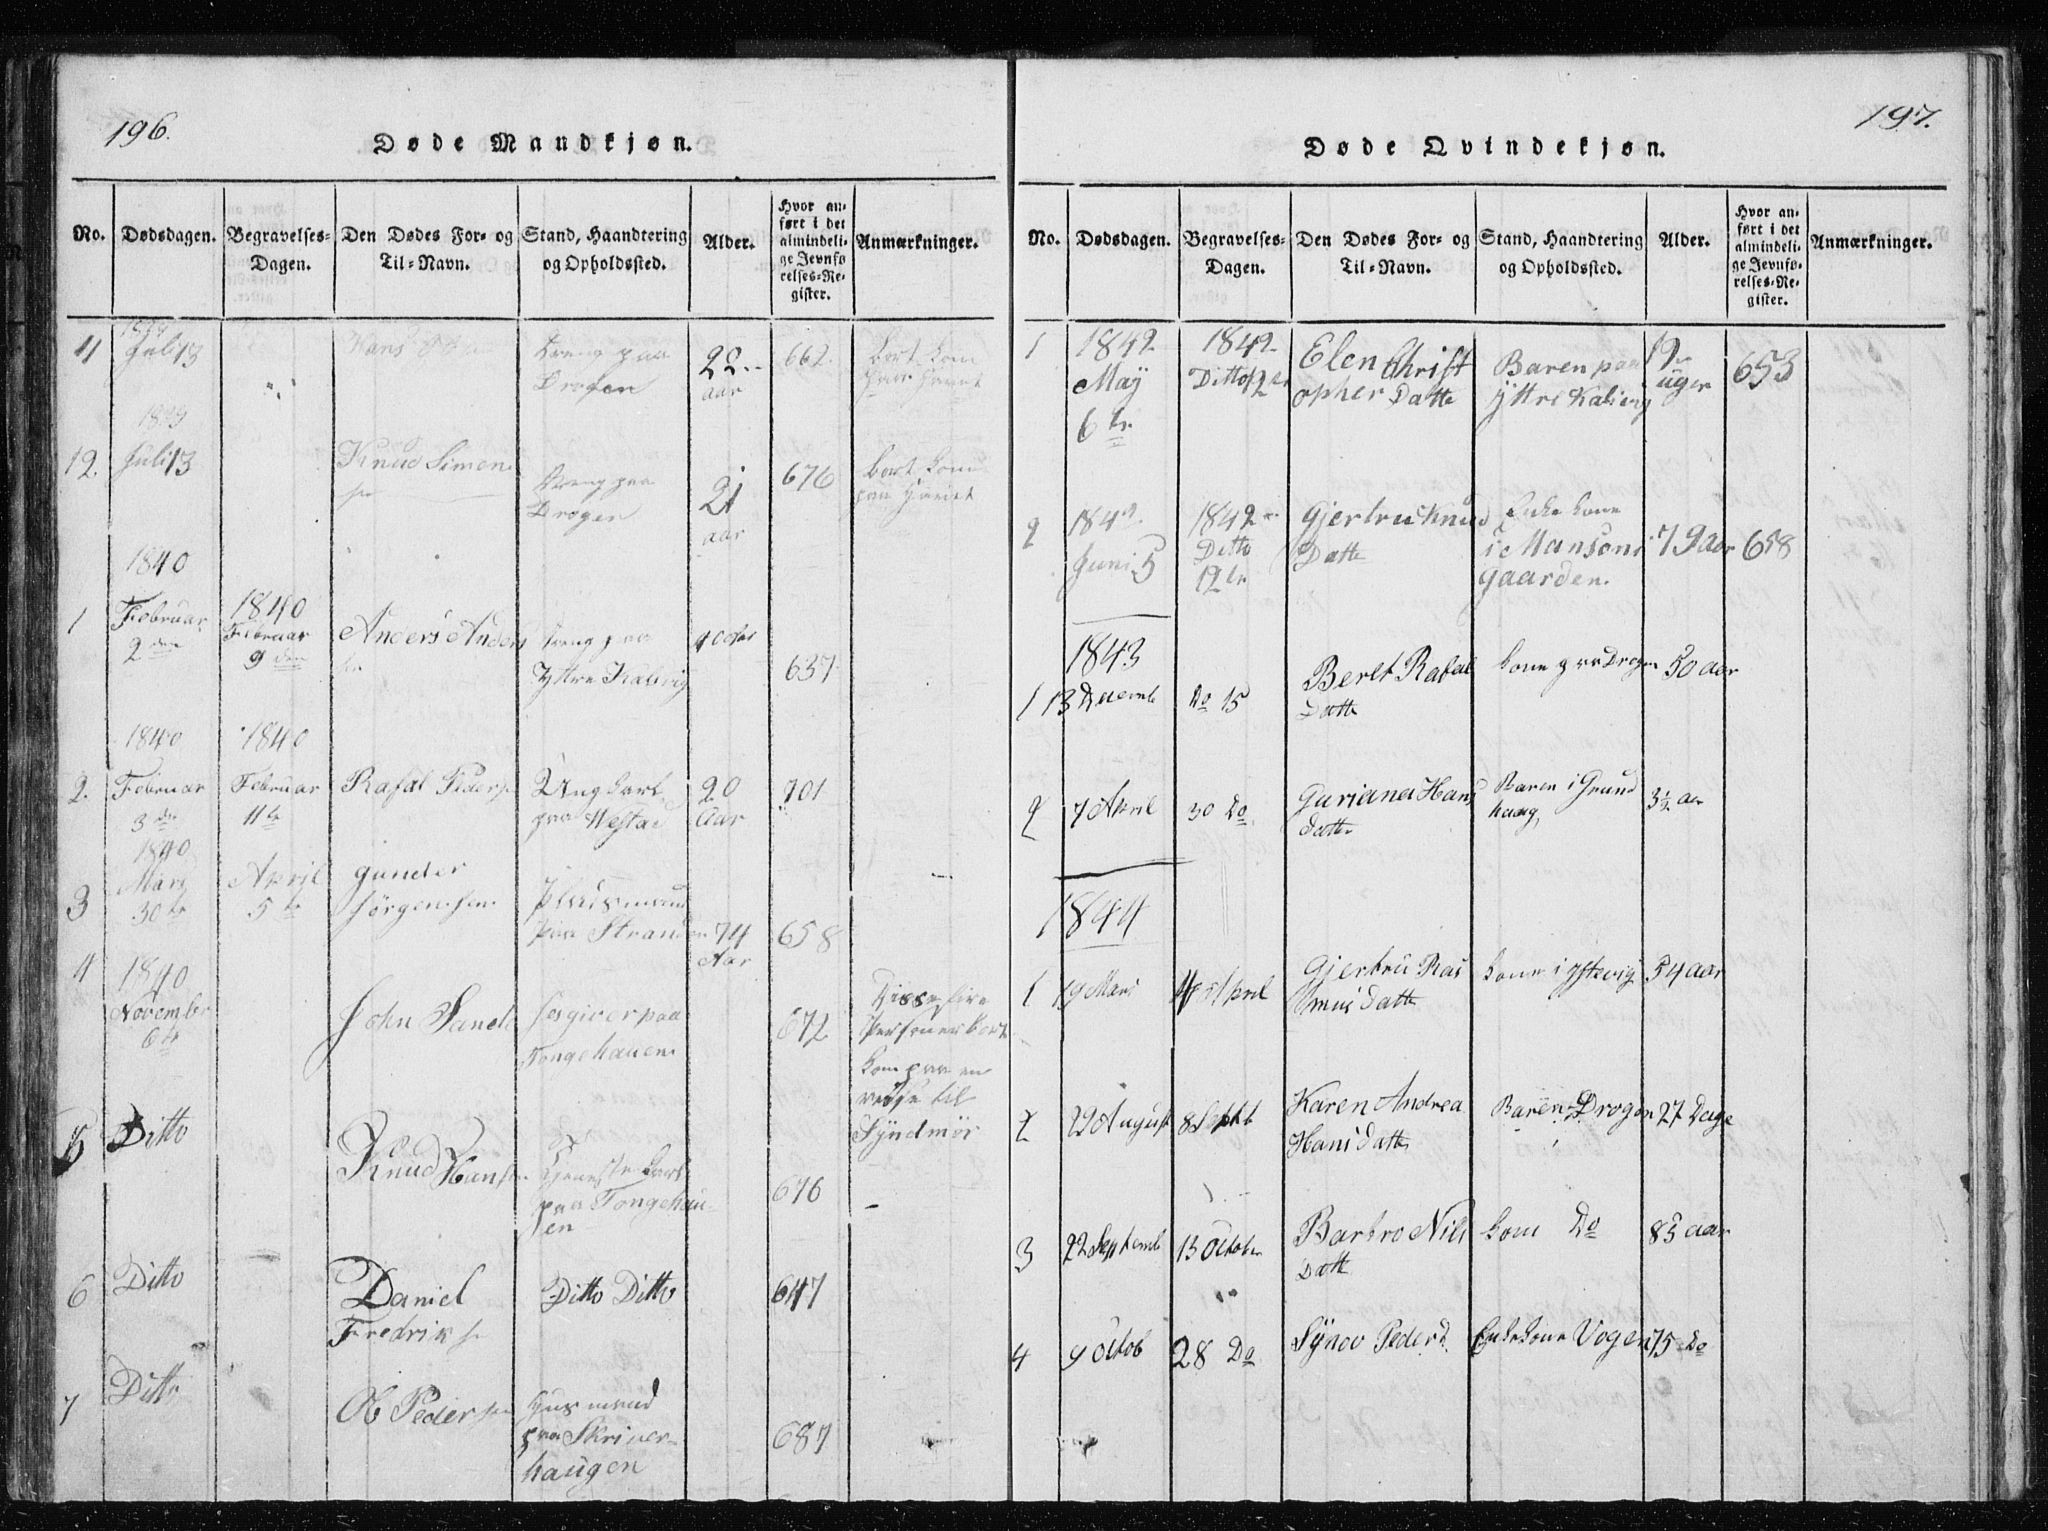 196.
Døde Mandkjøn.
No.
Dødsdagen.
Begravelses-
Dagen.
Den Dødes For- og
Til-Navn.
Stand, Haandtering
og Opholdssted.
Alder.
Hvor an-
ført i det
almindeli-
ge Jevnfø-
relses-Re-
gister.
Anmærkninger.
11
Juli 13
Hans
Dreng paa
Drogen
22
aar
662.
bort kom
paa Havet
1839
12.
Juli 13
Knud Simen
sen
Dreng paa
Drogen
21
aar
676
bort kom
paa Havet
1840
1
Februar
2 den
1840
Februar
9 den
Anders Anders
sen
Dreng paa
Yttre Kalsvig
637
1840
1840
2.
Februar
3 de
Februar
11 te
Rafal Peders
Ung karl
paa Westad
20
Aar
701
1840
3
Mars
30 te
April
5 te
gunder
Jørgensen
Plasmand
paa Stranden
74
Aar
658
4
1840
November
6 te
John Sand
paa
Tongehauen
672
Disse fire
Personer bort
kom paa en
reise til
Syndmør
5
Ditto
Knud Hansen
Tjeneste karl
paa Tongehau-
en
676
6
Ditto
Daniel
Fredriks
Ditto Ditto
647
7
Ditto
Ole Pedersen
Husmand
paa Skriver-
haugen
687
197.
Døde Qvindekjøn.
No.
Dødsdagen.
Begravelses-
Dagen.
Den Dødes For- og
Til-Navn.
Stand, Haandtering
og Opholdssted.
Alder.
Hvor an-
ført i det
almindeli-
ge Jevnfø-
relses-Re-
gister.
Anmærkninger.
1
1842
May
6 te
1842
Ditto
Elen Christ
opher Datte
Baren paa
yttre Kalsvig
12
uger
653
2
1842
Juni 5
1842
Ditto
12 te
Gjertru Knud
Datte
Enke kone
i Manson
gaarden.
79 aar
658
1843
1
13 Decemb
Do 15
Beret Rafal
Datte
kone paa Drogen
50 aar
2
7 April
30 Do
Guriana Hans
datte
Baren i Grund
haug
3½ aar
1844
1
19 Mars
April
Gjertru Ras
mus datte
kone i ystevig
54 aar
2
22 August
8 Septb
Karen Andrea
Hans datte
Baren Drogen
27 Dage
3
22 Septemb
13 October
Barbro Nils
Datte
kone Do
83 aar
4
9 Octob
28 Do
Synov Pederd
Enkekone Vogen
75 Do